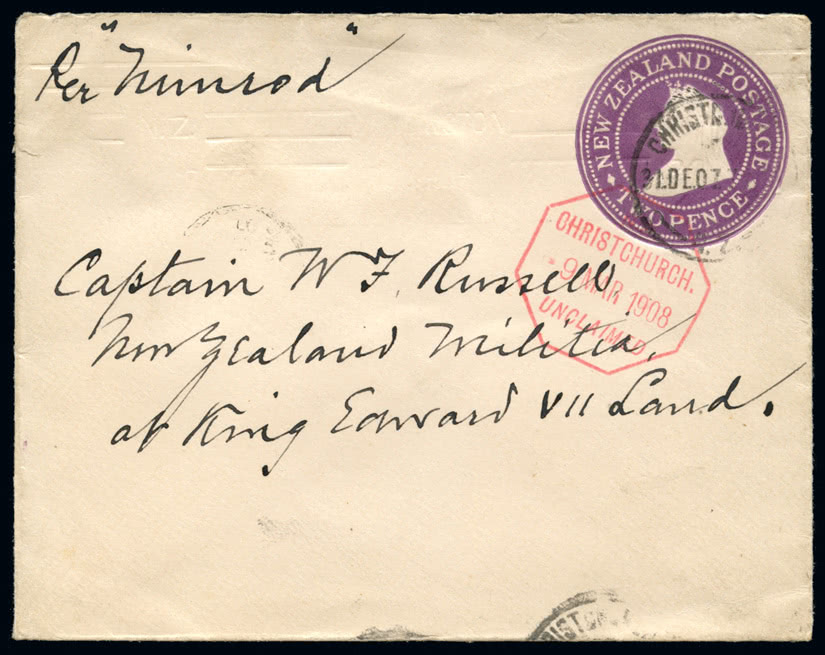 Per "Nimrod"
NEW ZEALAND POSTAGE
TWO PENCE
CHRISTCH
31 DE 07
CHRISTCHURCH.
9 MAR 1908
UNCLAIMED
Captain W F. Russell
New Zealand Militia,
at King Edward VII Land.